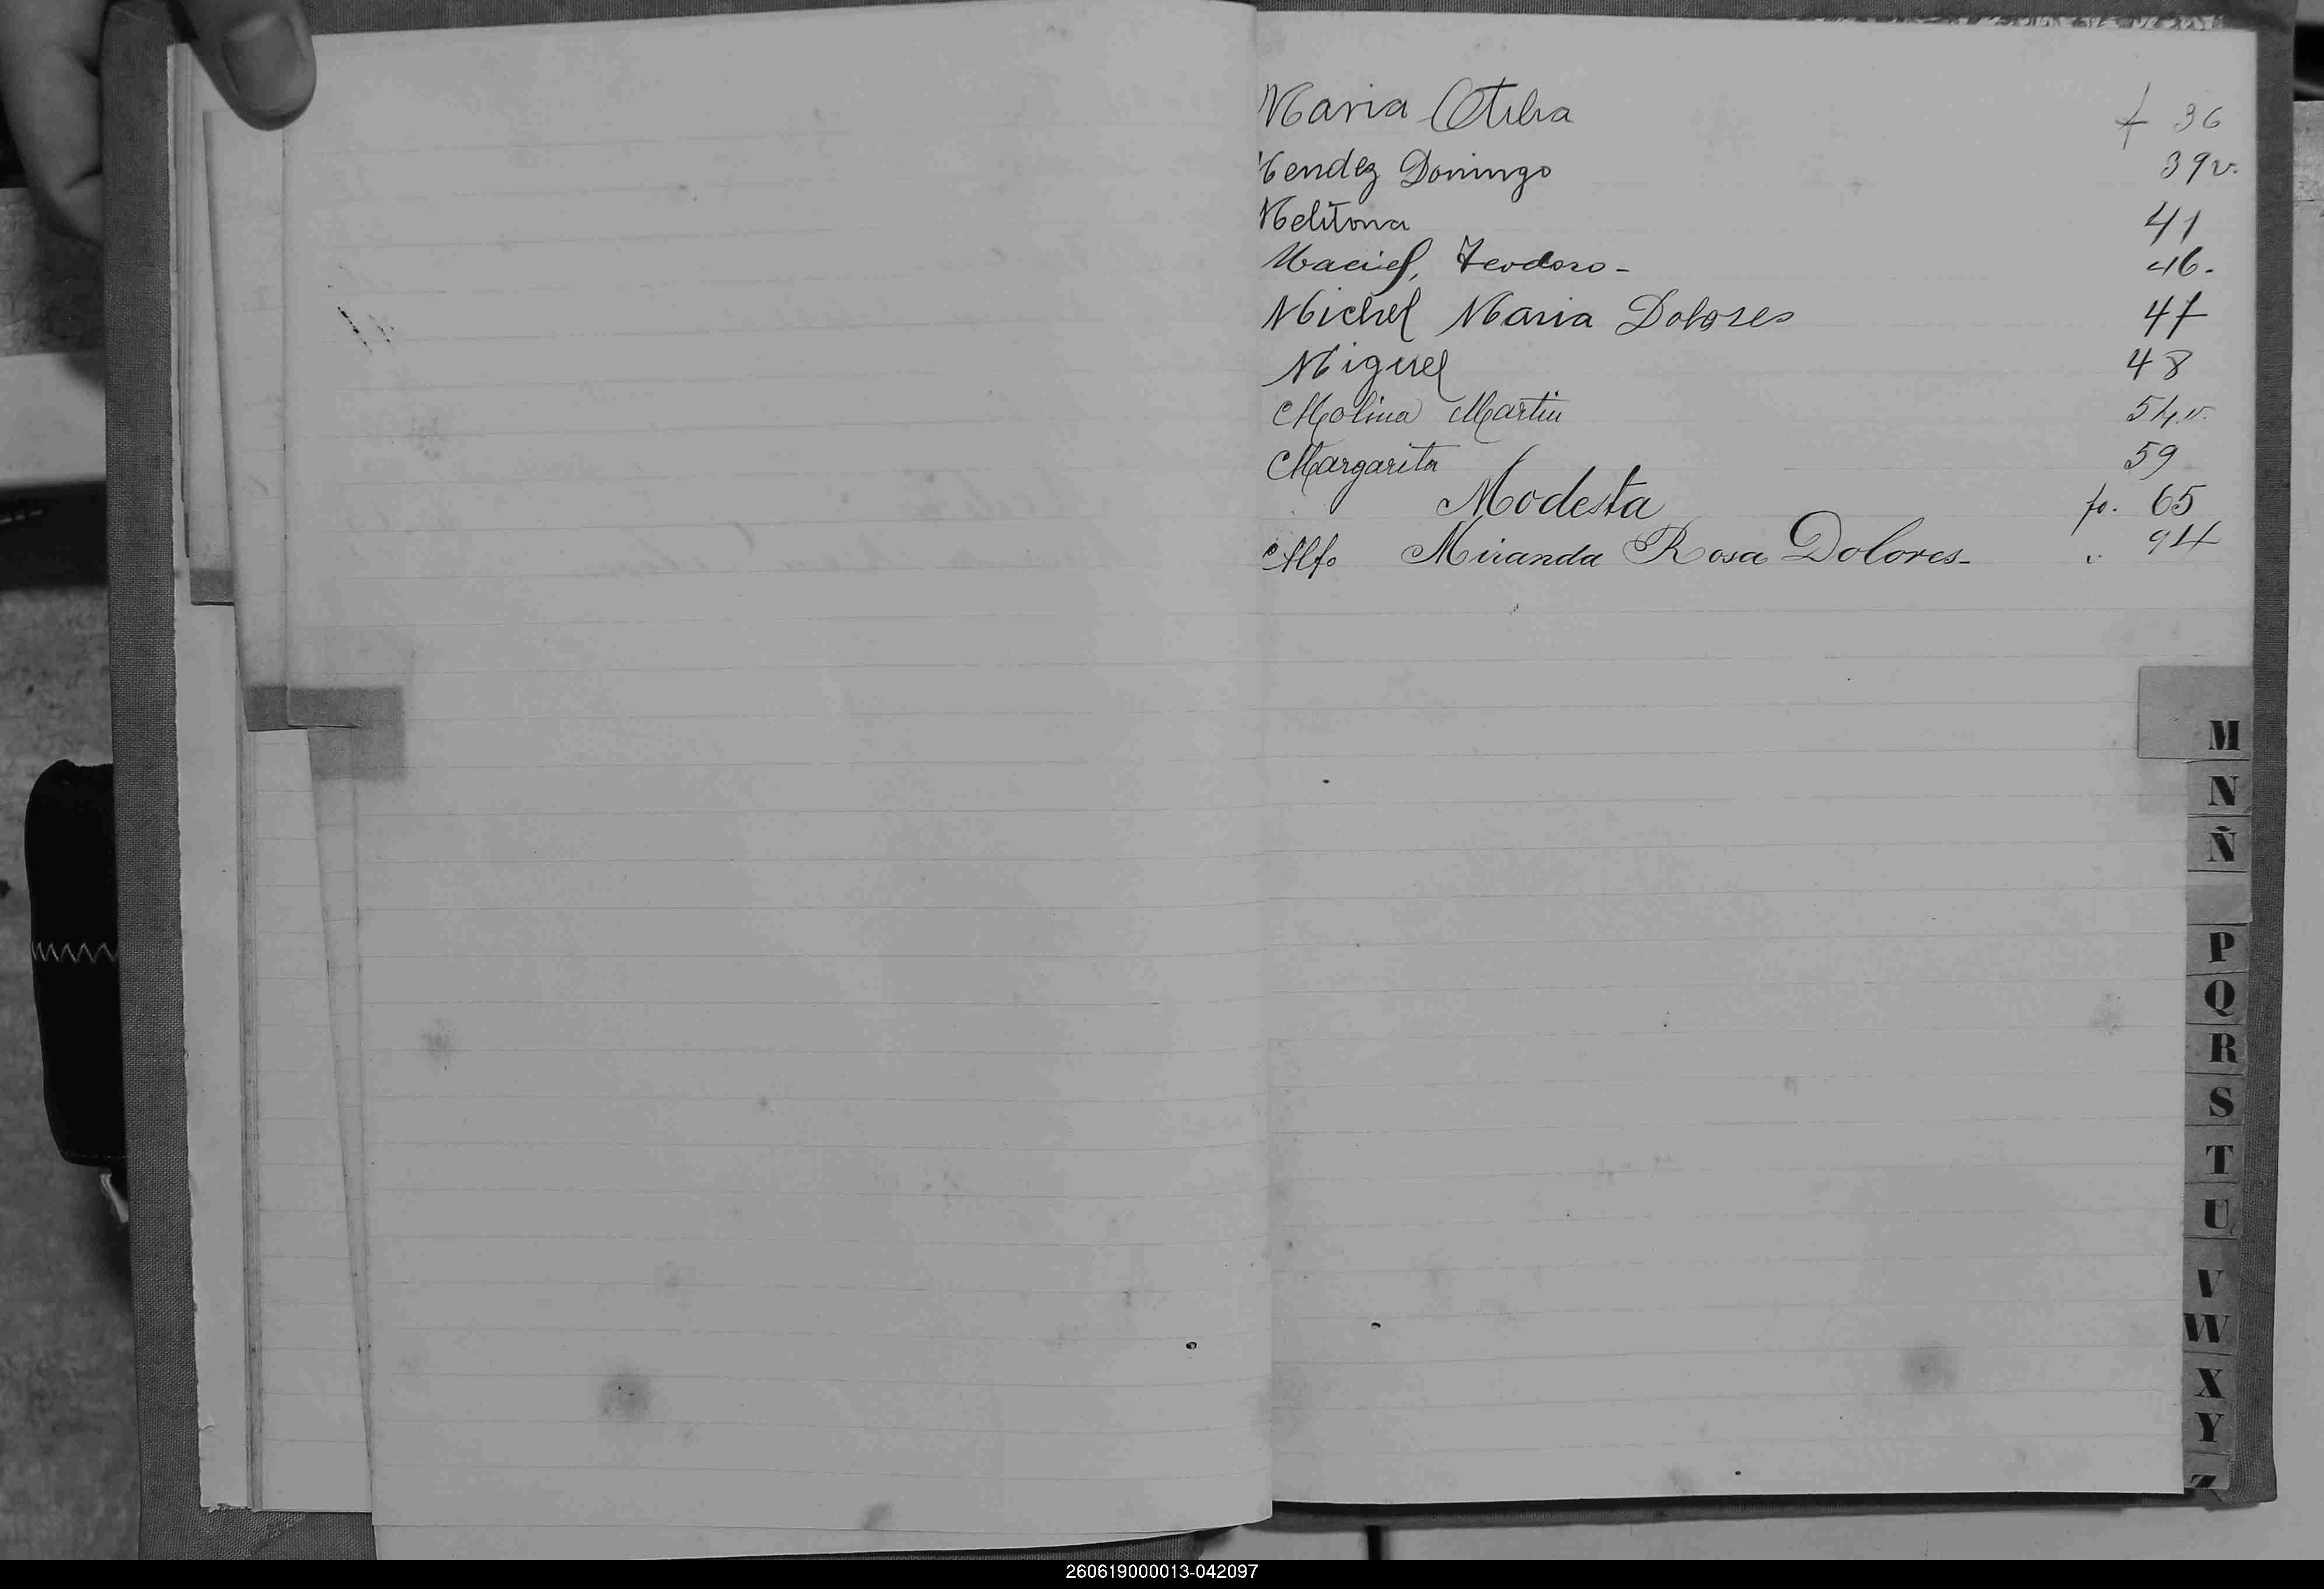 Maria Otilia f 36
Mendez Domingo 39v.
Melitona 41
Maciel, Teodoro - 46.
Michel Maria Dolores 47
Miguel 48
Molina Martin 54v.
Margarita 59
Modesta fo. 65
Miranda Rosa Dolores - 94
M
N
Ñ
P
Q
R
S
T
U
V
W
X
Y
Z
260619000013-042097